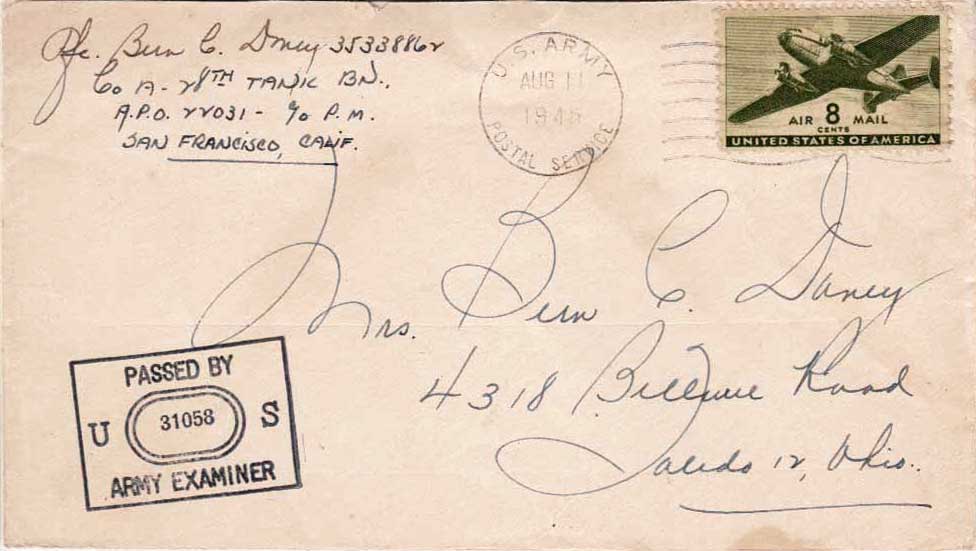 Pfc. Bern C. Dancy 35338862
Co A - 28TH TANK BN.,
A.P.O. 22031 - c/o P.M.
SAN FRANCISCO, CALIF.
U.S. ARMY
AUG 11
194
POSTAL SERVICE
AIR 8 MAIL
CENTS
UNITED STATES OF AMERICA
Mrs. Bern C. Dancy
4318 Bellevue Road
Toledo 12, Ohio.
PASSED BY
U 31058 S
ARMY EXAMINER